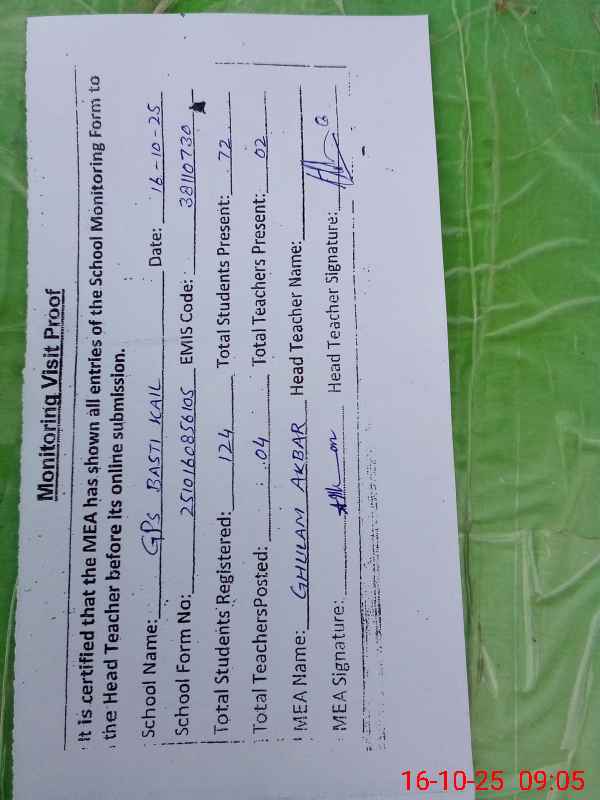 Monitoring Visit Proof
It is certified that the MEA has shown all entries of the School Monitoring Form to
the Head Teacher before its online submission.
School Name: GPS BASTI KAIL Date: 16-10-25
School Form No: 2510160856105 EMIS Code: 38110730
Total Students Registered: 124 Total Students Present: 72
Total TeachersPosted: 04 Total Teachers Present: 02
MEA Name: GHULAM AKBAR Head Teacher Name:
MEA Signature: Head Teacher Signature:
16-10-25 09:05